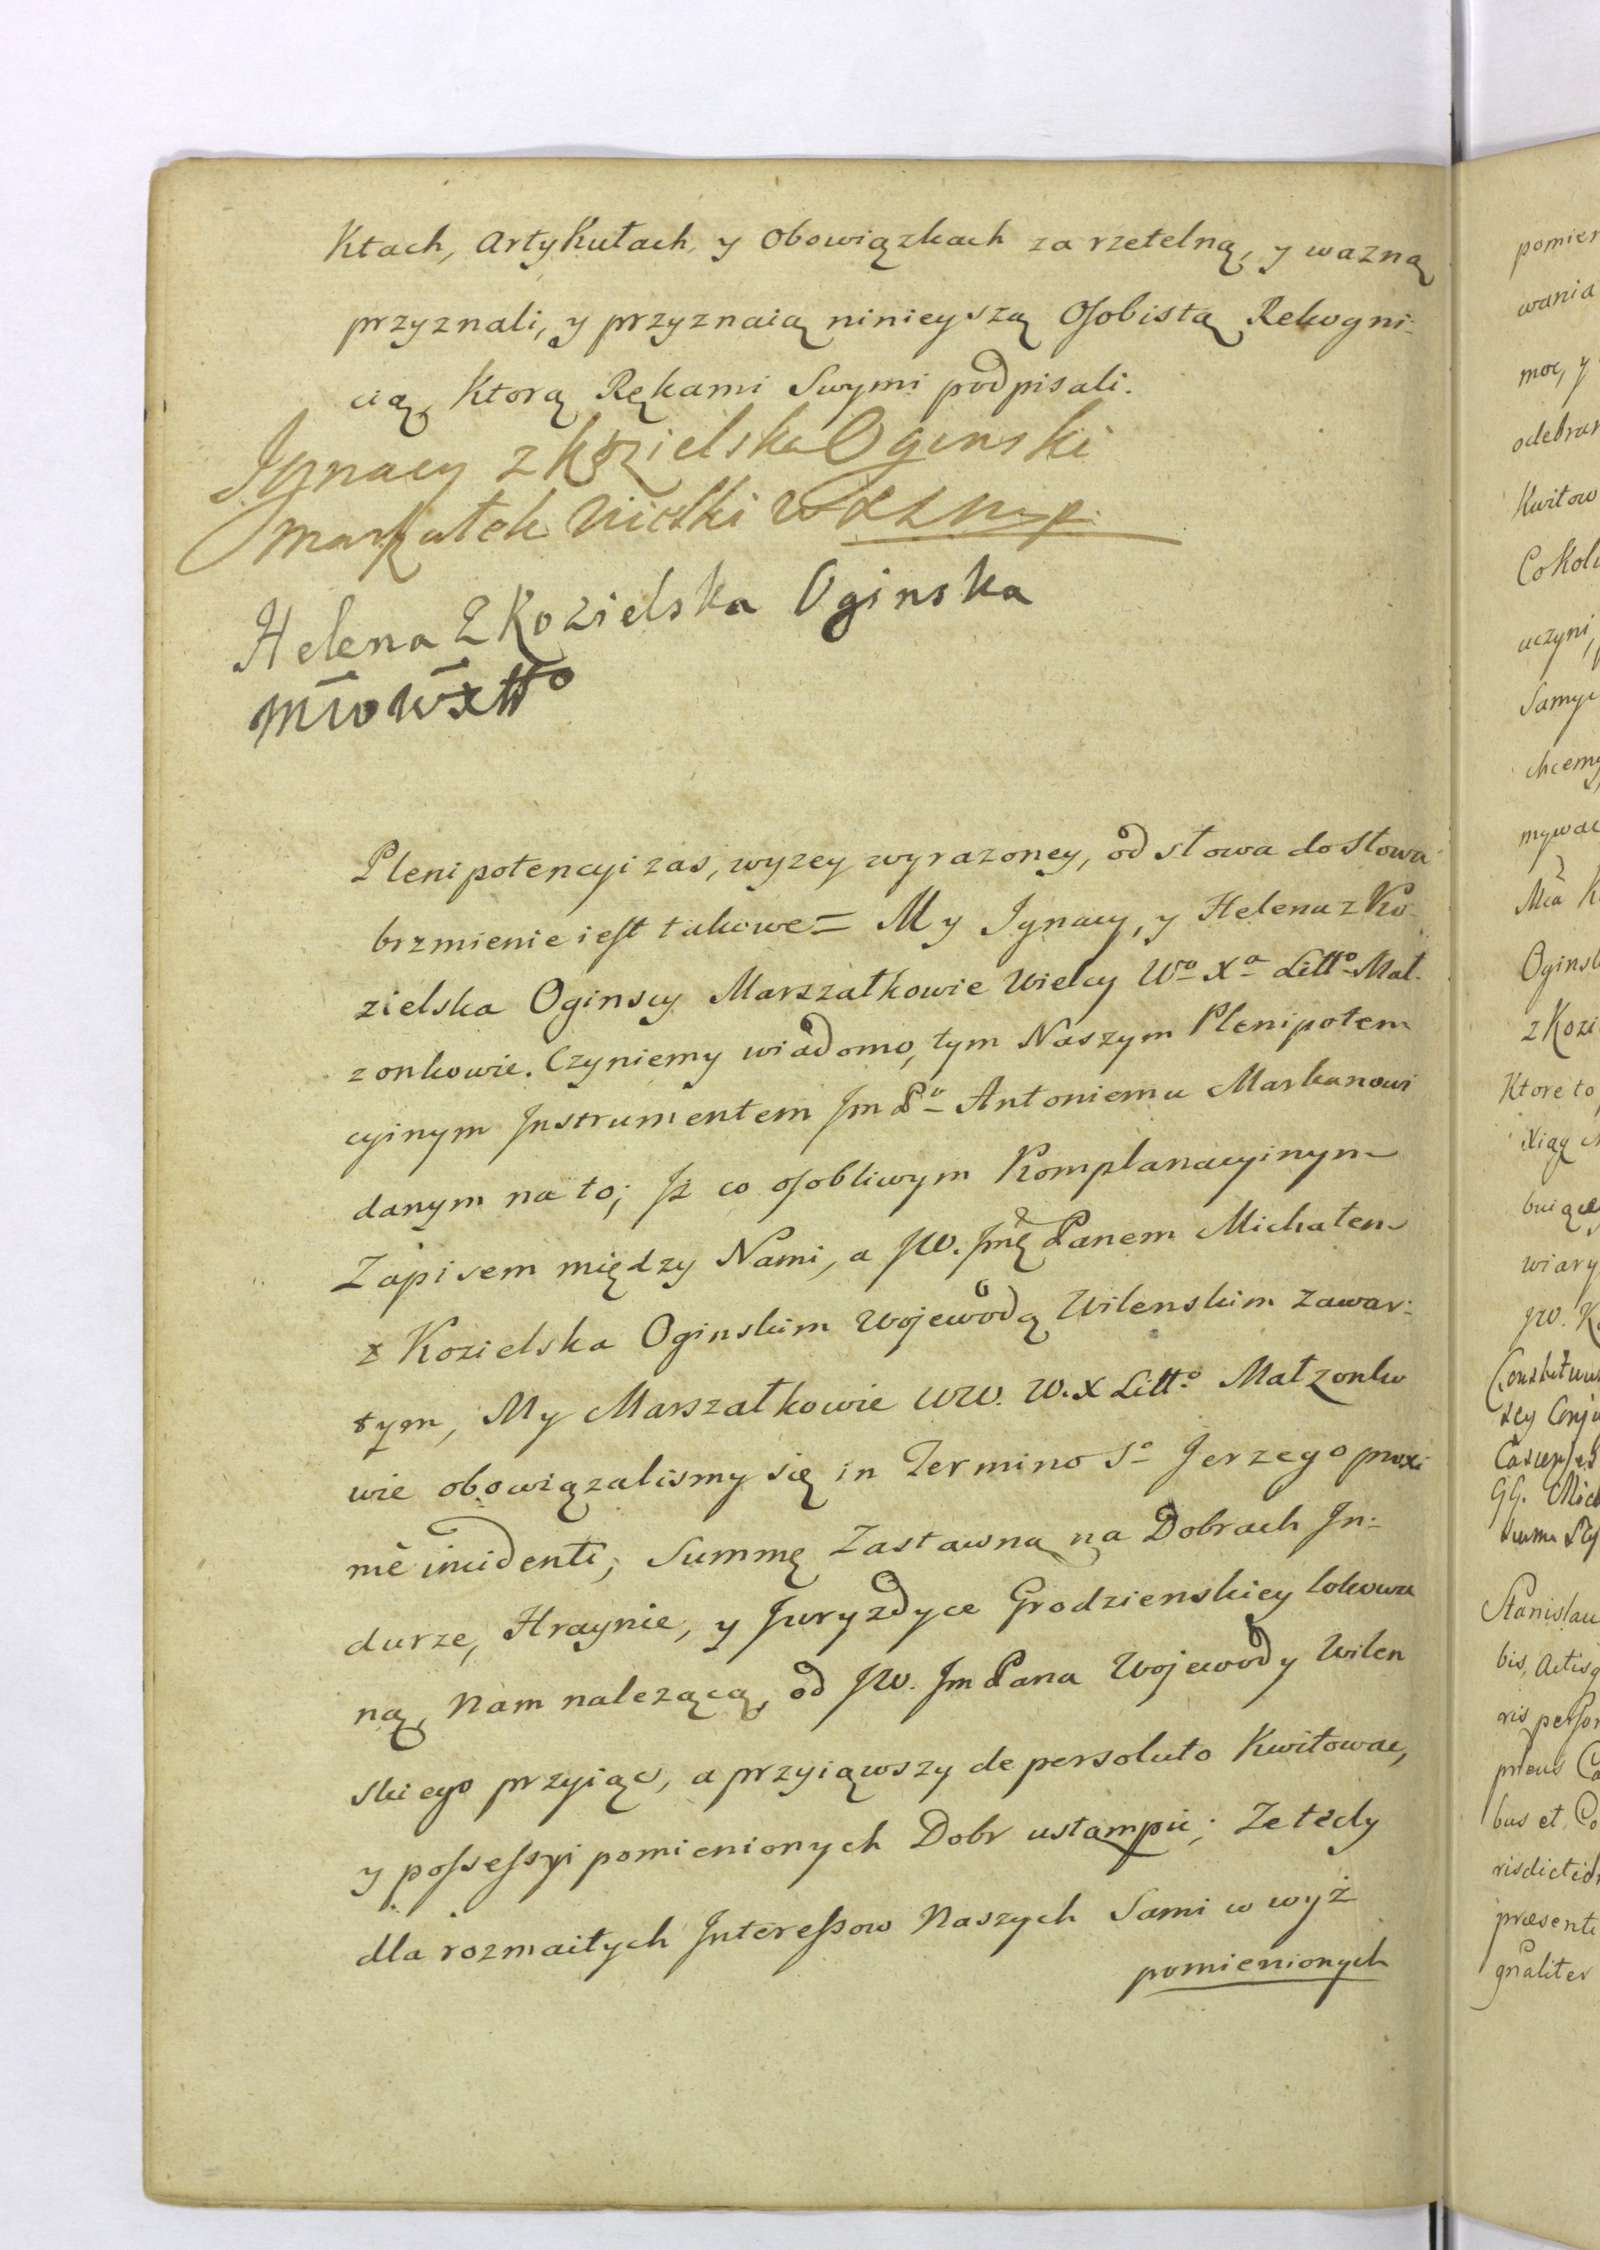 Ktach, Artykułach, y Obowiązkach za rzetelną, y wazną
przyznali, y przyznaią ninieyszą Osobistą Rekogni-
cią, Ktorą Rękami Swymi podpisali.
Ignacy z Kozielska Oginski
Marszałek Wielki
Helena Z Kozielska Oginska
MWWXLitto
Plenipotencyi zas, wyzey wyrazoney, od słowa do słowa
brzmienie iest takowe = My Ignacy, y Helena z Ko-
zielska Oginscy Marszałkowie Wielcy Wo Xa Litto Mał-
zonkowie. Czyniemy wiadomo, tym Naszym Plenipoten
cyinym Instrumentem Jm Pu Antoniemu Markanowi
danym na to; Jż co osobliwym Komplanacyinym
Zapisem między Nami, a JW. Jmę Panem Michałem
z Kozielska Oginskim Wojewodą Wilenskim zawar-
tym, My Marszałkowie WW. W. X Litto Małzonko
wie obowiązalismy się in Termino So Jerzego proxi
mè incidenti, Summę Zastawną na Dobrach Jn-
durze, Hraynie, y Juryzdyce Grodzienskiey lokowa
ną, Nam nalezącą, od JW. Jm Pana Wojewody Wilen
skiego przyiąć, a przyiąwszy de persoluto Kwitowac,
y possessyi pomienionych Dobr ustąmpic; Ze tedy
dla rozmaitych Interessow Naszych Sami w wyż
pomienionych
pomien
wania
moc, y
odebran
Kwitow
Cokol
uczyni,
Samy
chcemy
mywac
Mca
Oginsk
z Kozi
Ktore to
Xiąg
buiące
wiary
JW. K
sey
GG. Mic
Stanislau
bis, Actisq
ris person
bus et Co
risdiction
præsenti
gnaliter